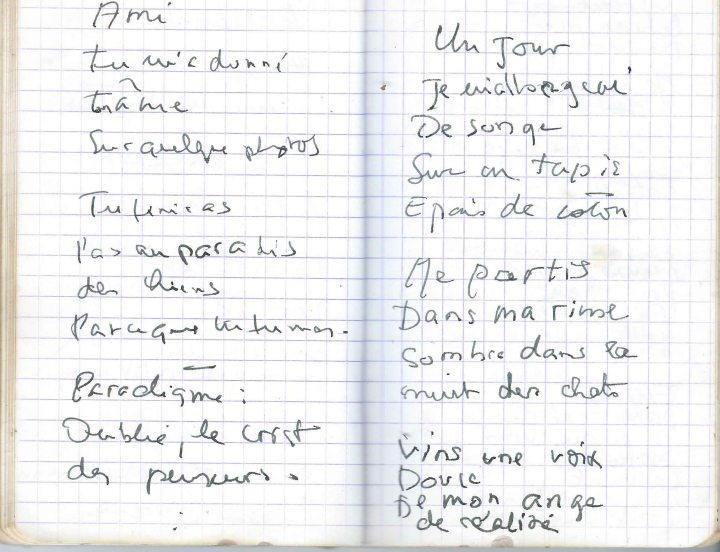 Ami
tu m'a donné
tn âme
Sur quelque photos
Tu finiras
pas au paradis
des chiens
Parceque tu fumes.
Paradigme :
Oublié, le
des penseurs.
Un Jour
Je
De songe
Sur un tapis
Epais de coton
Me partis
Dans ma rime
sombre dans la
nuit des chats
Vins une voix
Douce
De mon ange
de réalité